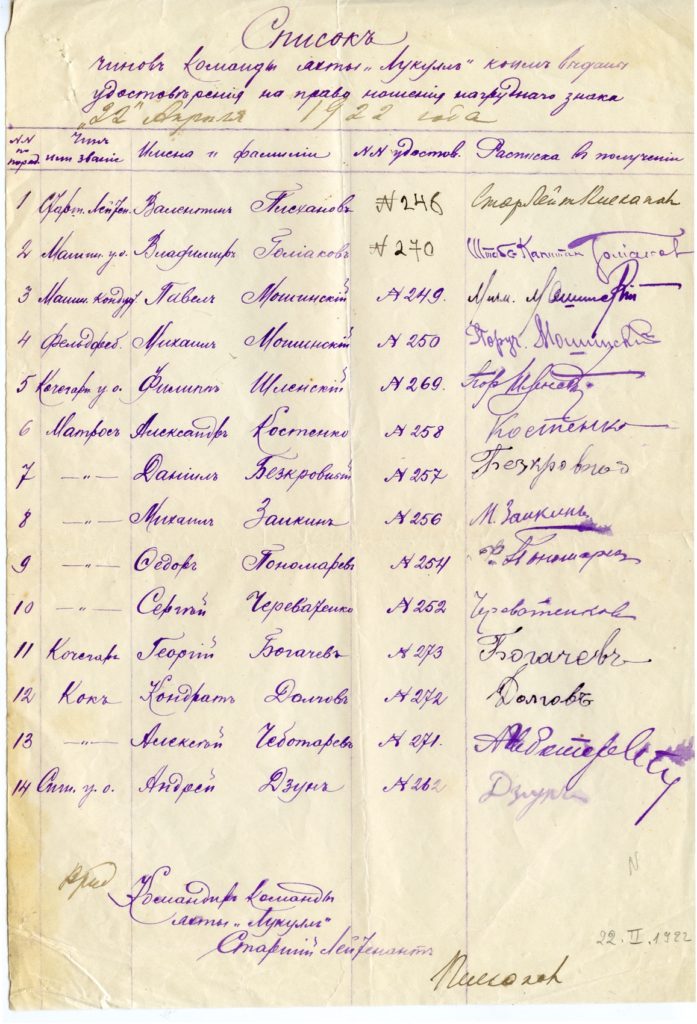 Списокъ
чиновъ команды яхты „Лукуллъ" коимъ выданы
удостовѣренія на право ношенія нагруднаго знака
„22" Апрѣля 1922 года
NN по поряд. Чинъ или званіе Имена и фамиліи NN удостов. Расписка въ полученіи
1 Старш. Лейтен. Валентинъ Плехановъ N 248
2 Машин. у.о. Владиміръ Голіаковъ N 270 Штабсъ-Капитан
3 Машин. кондук. Павелъ Мошинскій N 249.
4 Фельдфеб. Михаилъ Мошинскій N 250 Поруч. Мошинскій
5 Кочегарн. у.о. Филиппъ Шленскій N 269.
6 Матросъ Александръ Костенко N 258 Костенко
7 —„— Даніилъ Безкровный N 257 Безкровный
8 —„— Михаилъ Заикинъ N 256 М. Заикинъ
9 —„— Ѳедоръ Пономаревъ N 254
10 —„— Сергѣй Череватенко N 252 Череватенков
11 Кочегаръ Георгій Богачевъ N 273 Богачевъ
12 Кокъ Кондратъ Долговъ N 272 Долговъ
13 —„— Алексѣй Чеботаревъ N 271.
14 Сигн. у.о. Андрей Дзунъ N 262 Дзунъ
Врид Командиръ команды
яхты „Лукуллъ"
Старшій Лейтенантъ
N
22.II.1922